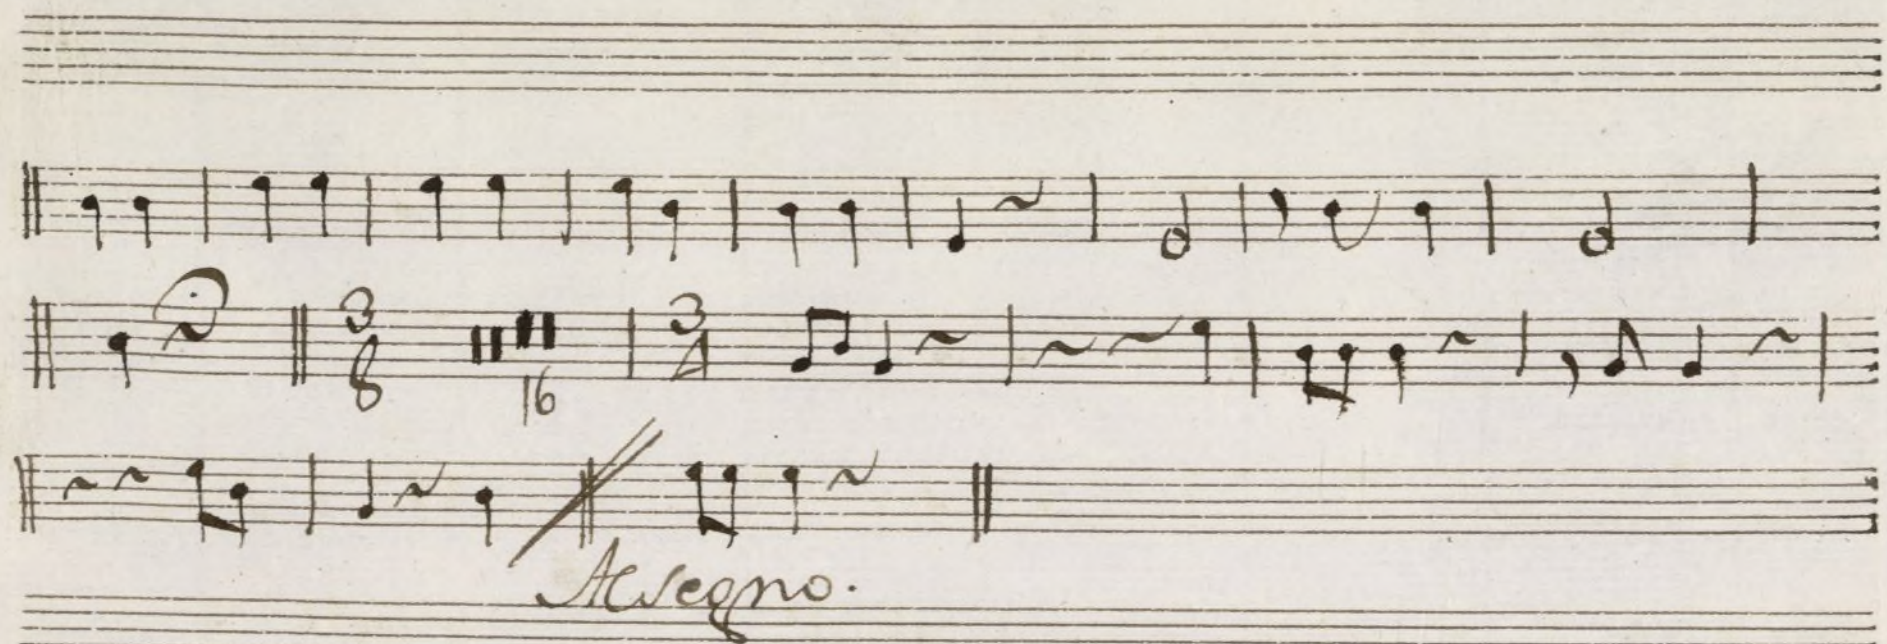 3 8 16 3 4
Al segno.